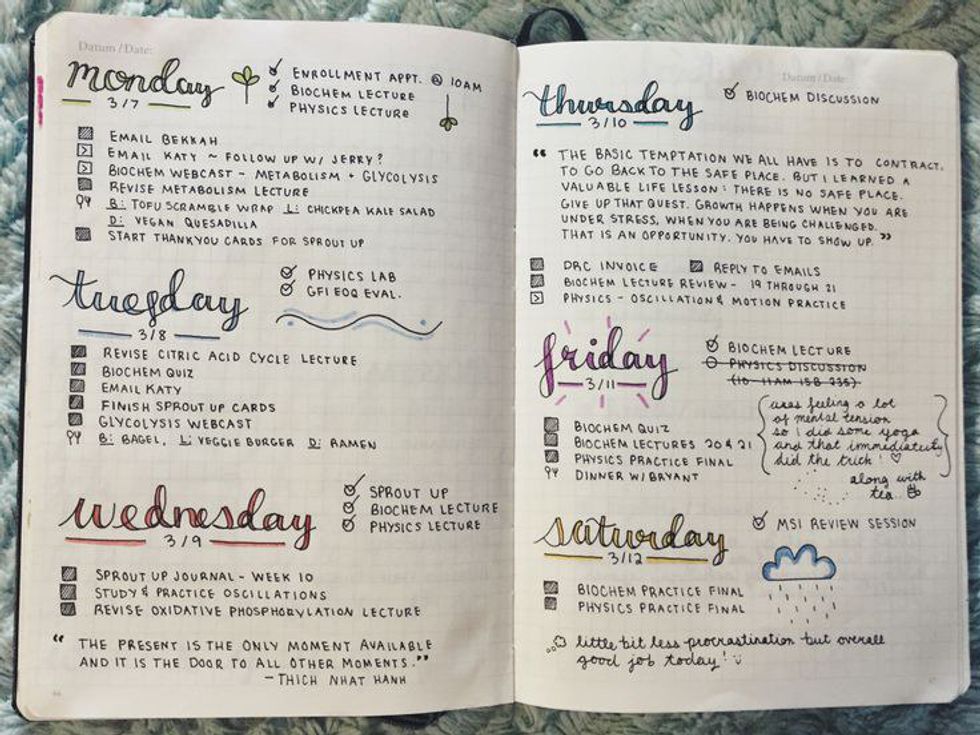 Datum / Date:
monday
3/7
ENROLLMENT APPT. @ 10AM
BIOCHEM LECTURE
PHYSICS LECTURE
EMAIL BEKKAH
EMAIL KATY ~ FOLLOW UP W/ JERRY?
BIOCHEM WEBCAST - METABOLISM + GLYCOLYSIS
REVISE METABOLISM LECTURE
B: TOFU SCRAMBLE WRAP L: CHICKPEA KALE SALAD
D: VEGAN QUESADILLA
START THANKYOU CARDS FOR SPROUT UP
tuesday
3/8
PHYSICS LAB
GFI EOQ EVAL.
REVISE CITRIC ACID CYCLE LECTURE
BIOCHEM QUIZ
EMAIL KATY
FINISH SPROUT UP CARDS
GLYCOLYSIS WEBCAST
B: BAGEL, L: VEGGIE BURGER D: RAMEN
wednesday
3/9
SPROUT UP
BIOCHEM LECTURE
PHYSICS LECTURE
SPROUT UP JOURNAL - WEEK 10
STUDY & PRACTICE OSCILLATIONS
REVISE OXIDATIVE PHOSPHORYLATION LECTURE
“ THE PRESENT IS THE ONLY MOMENT AVAILABLE
AND IT IS THE DOOR TO ALL OTHER MOMENTS.”
- THICH NHAT HANH
Datum / Date:
thursday
3/10
BIOCHEM DISCUSSION
“ THE BASIC TEMPTATION WE ALL HAVE IS TO CONTRACT,
TO GO BACK TO THE SAFE PLACE. BUT I LEARNED A
VALUABLE LIFE LESSON: THERE IS NO SAFE PLACE.
GIVE UP THAT QUEST. GROWTH HAPPENS WHEN YOU ARE
UNDER STRESS, WHEN YOU ARE BEING CHALLENGED.
THAT IS AN OPPORTUNITY. YOU HAVE TO SHOW UP. ”
DRC INVOICE REPLY TO EMAILS
BIOCHEM LECTURE REVIEW - 19 THROUGH 21
PHYSICS - OSCILLATION & MOTION PRACTICE
friday
3/11
BIOCHEM LECTURE
PHYSICS DISCUSSION
(10-11AM ISB 235)
BIOCHEM QUIZ
BIOCHEM LECTURES 20 & 21
PHYSICS PRACTICE FINAL
DINNER W/ BRYANT
was feeling a lot
of mental tension
so i did some yoga
and that immediately
did the trick!
along with
tea
saturday
3/12
MSI REVIEW SESSION
BIOCHEM PRACTICE FINAL
PHYSICS PRACTICE FINAL
little bit less procrastination but overall
good job today!